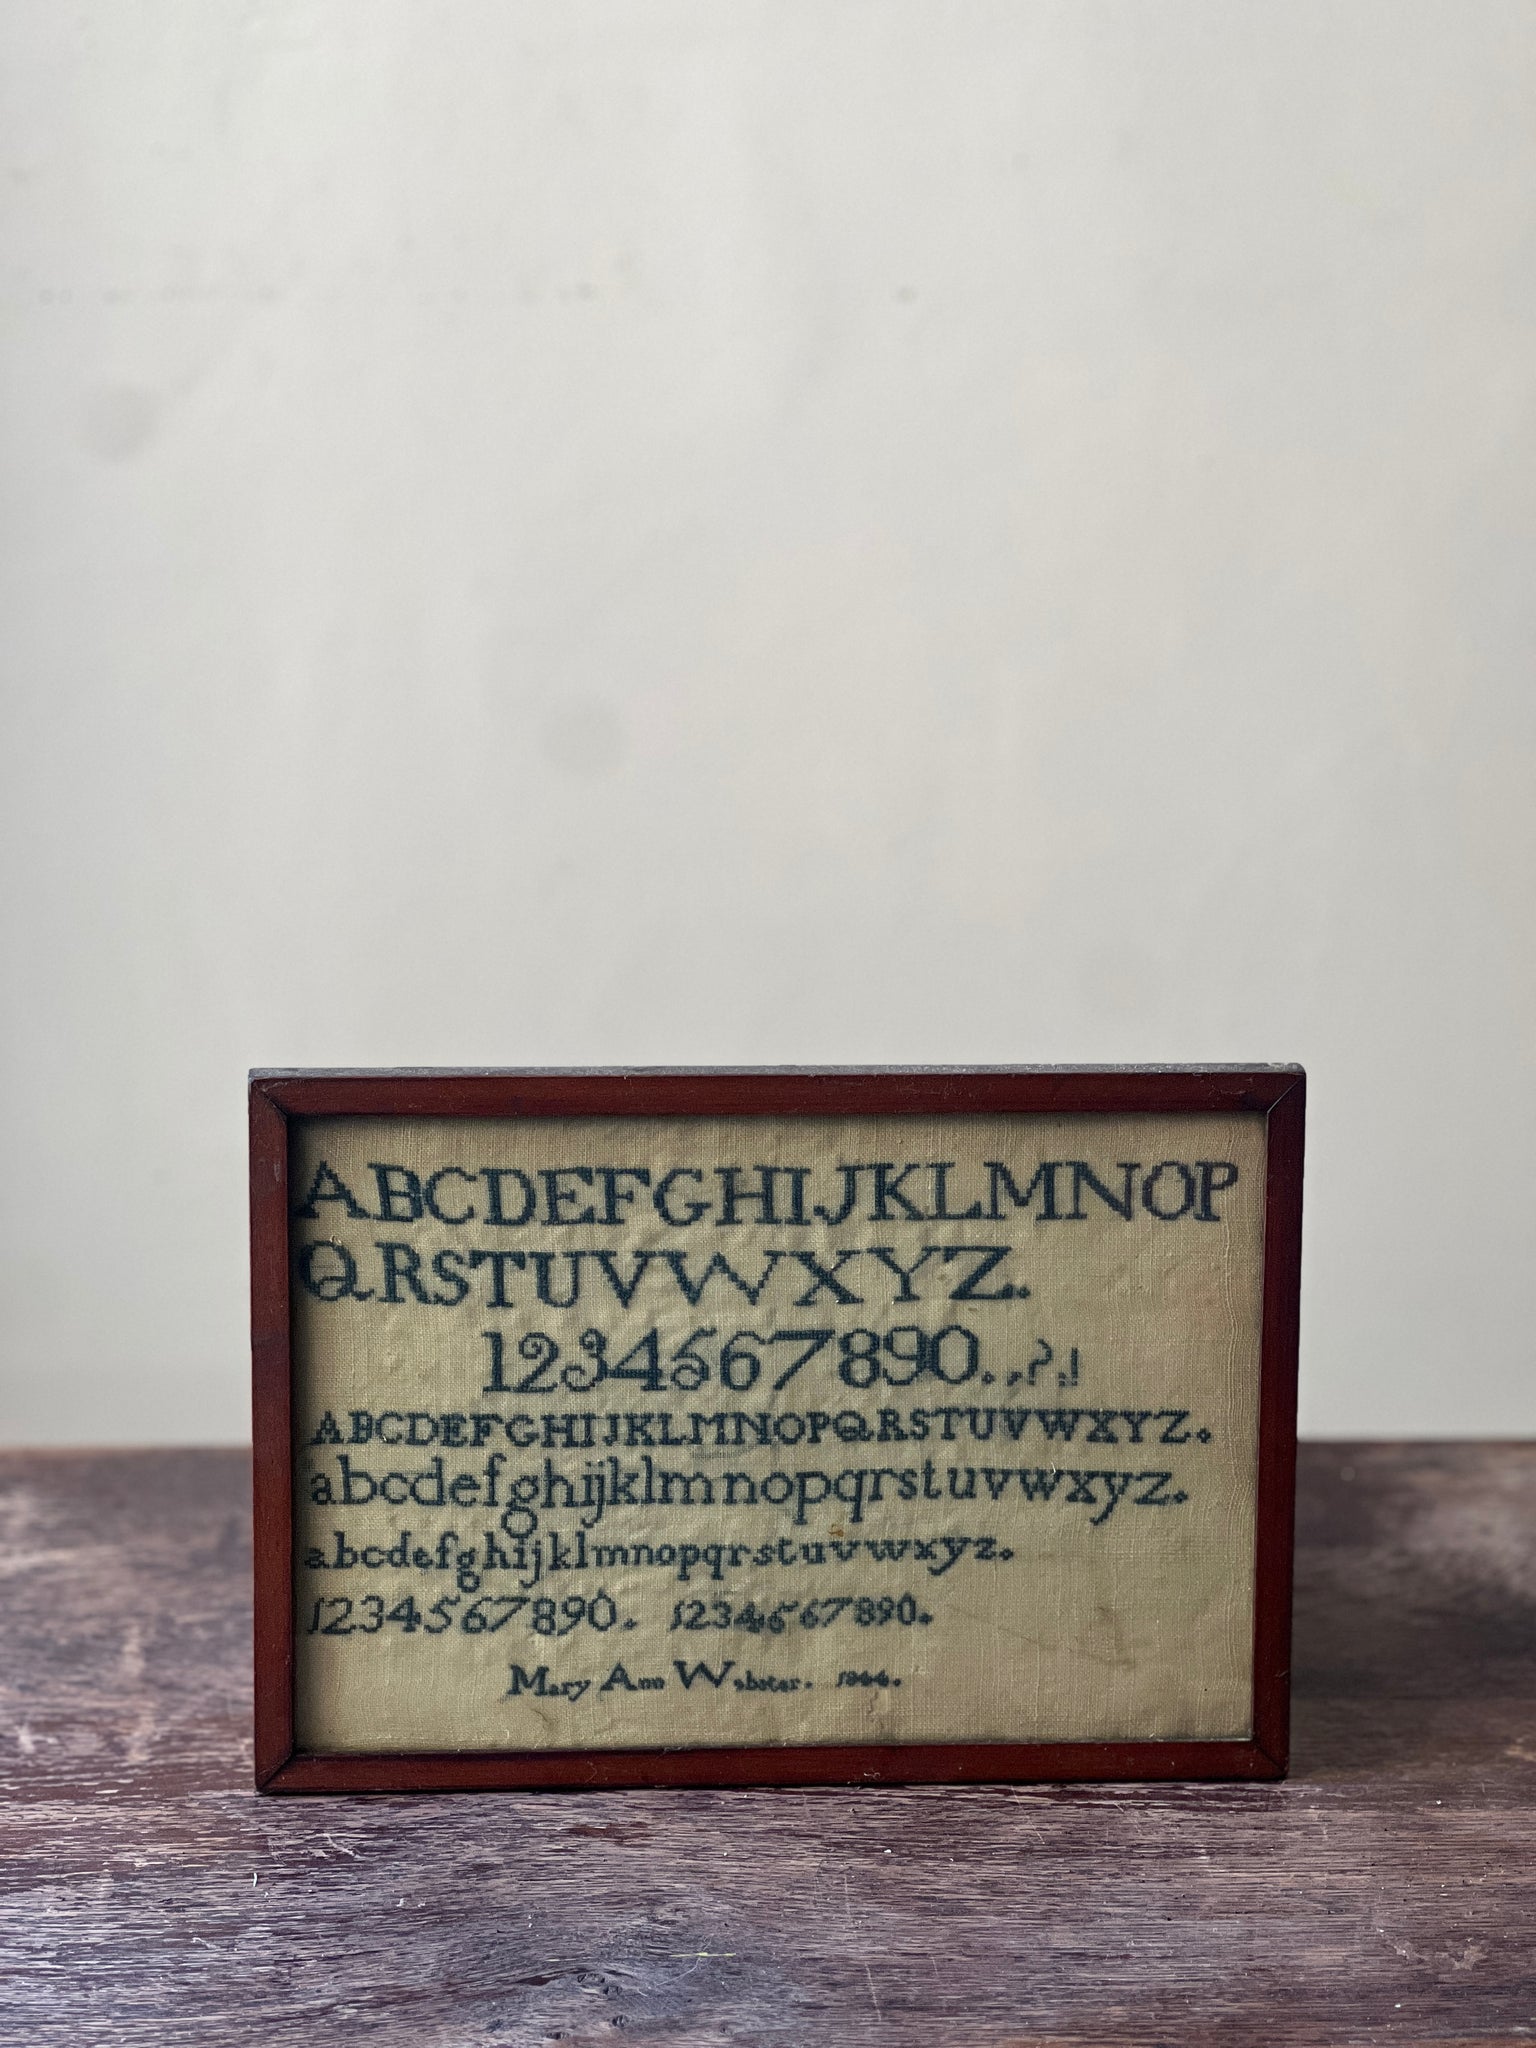 ABCDEFGHIJKLMNOP
QRSTUVWXYZ.
1234567890.,?!
ABCDEFGHIJKLMNOPQRSTUVWXYZ.
abcdefghijklmnopqrstuvwxyz.
abcdefghijklmnopqrstuvwxyz.
1234567890. 1234567890.
Mary Ann Webster.